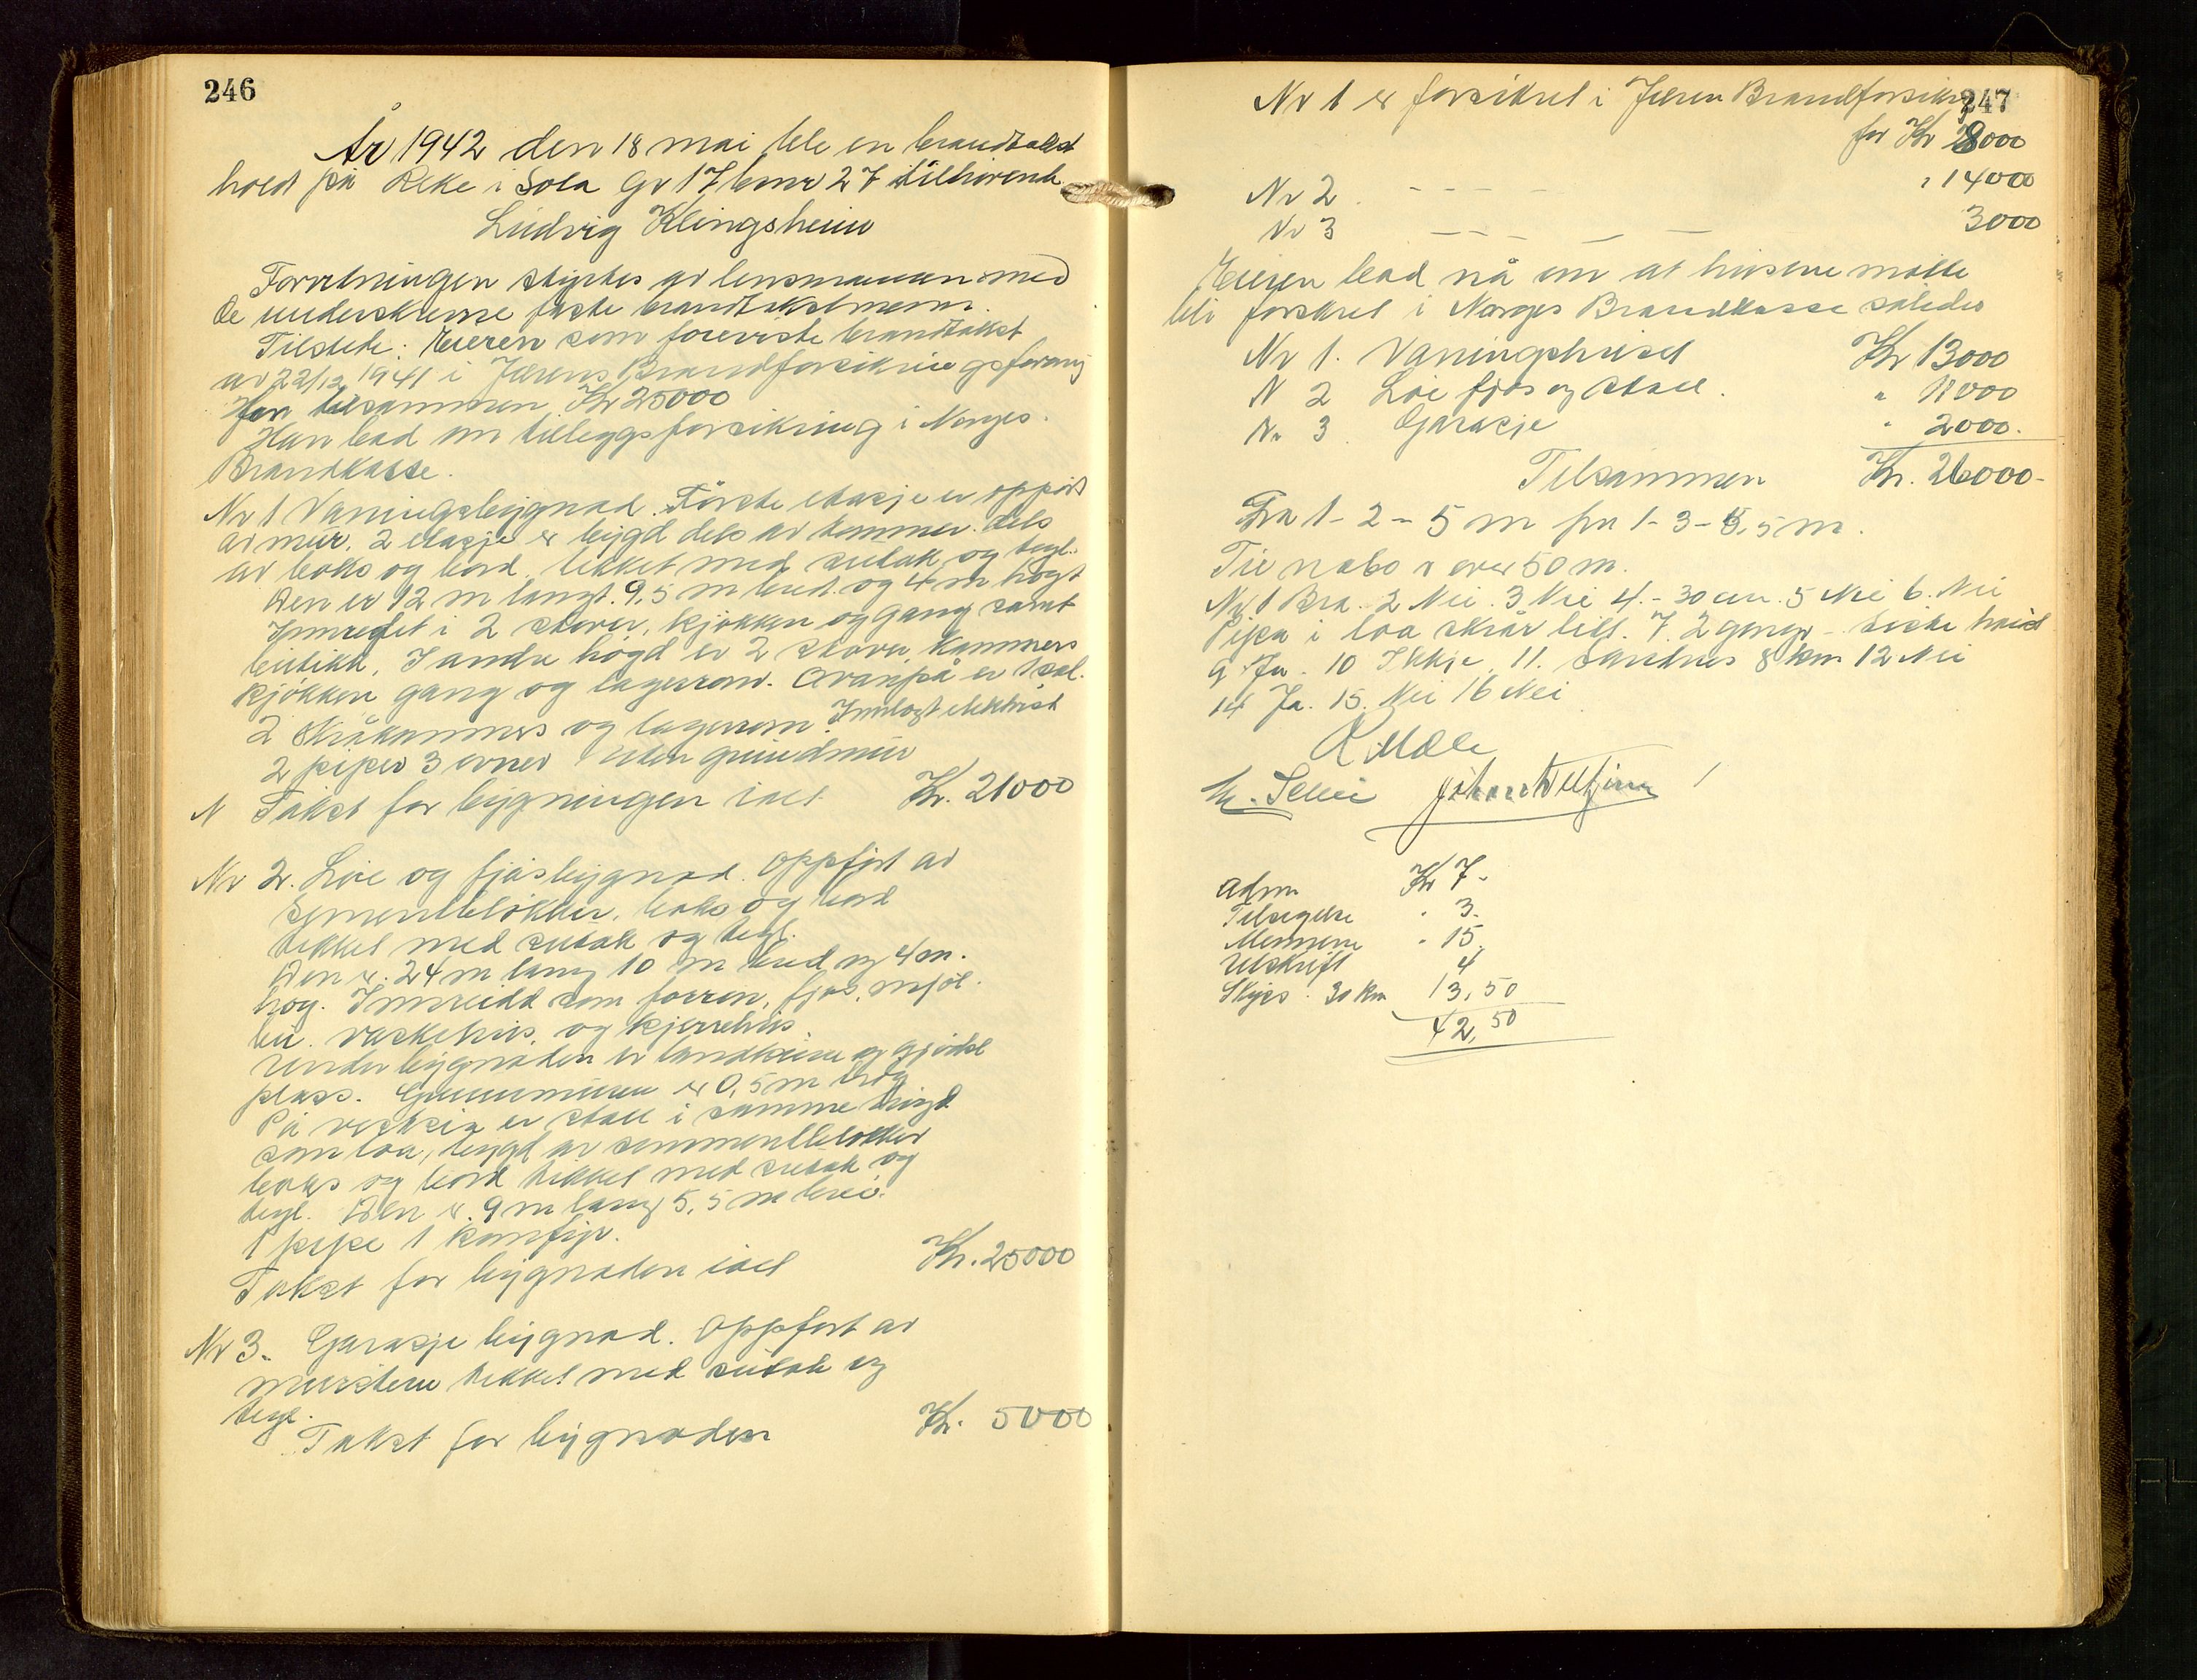 246
År 1942 den 18 mai ble en brandtakst
holdt på Reke i Sola Gr 17 bnr 27 tilhørende
Ludvig Klingsheim
Forretningen styrtes av lensmannen med
de underskrevne faste brandtakstmenn.
Tilstede: Eieren som foreviste brandtakst
av 22/12 1941 i Jærens Brandforsikringsforening
tilsammen Kr 25000
Han bad om tilleggsforsikring i Norges
Brandkasse.
Nr 1 Vaningsbygnad. Første etasje er oppført
av mur. 2 etasje er bygd dels av tømmer. dels
av boks og bord. tekket med sutak og tegl.
Den er 12 m langt. 9,5 m bred. og 4 m høgt
Innredet i 2 stover, kjøkken og gang samt
butikk. I andre høgd er 2 stover, kammers
kjøkken gang og lagerrom. Ovanpå er 1 sal.
2 skråkammers og lagerrom. Innlagt elektrisk
2 piper 3 ovner uten grundmur
N Takst for bygningen ialt Kr. 21000
Nr 2. Løe og fjøsbygnad. Oppført av
sementblokker, boks og bord
tekket med sutak og tegl.
Den er. 24 m lang 10 m bred og 4 m.
høg. Innreidd som forrom, fjøs, mjøl
bu. vaskehus, og kjerrehus.
Under bygnaden er landkum og gjødsel
plass. Grunnmuren er 0,5 m høg
På vestsia er stall i samme høgd
som loa, bygd av sementblokker
boks og bord tekket med sutak og
tegl. Den er. 9 m lang 5,5 m brei.
1 pipe 1 komfyr.
Takst for bygnaden ialt Kr. 25000
Nr 3. Garasje bygnad. Oppført av
murstein tekket med sutak og
tegl.
Takst for bygnaden Kr. 5000
247
Nr 1 er forsikret i Jæren Brandforsikr
for Kr 8000
Nr 2 - - - - - " 14000
Nr 3 - - - - - 3000
Eieren bad nå om at husene måtte
bli forsikret i Norges Brandkasse således
Nr 1. Vaningshuset Kr 13000
N 2 Løe fjøs og stall. " 11000
Nr 3. Garasje " 2000.
Tilsammen Kr. 26000-
Fra 1 - 2 - 5 m fra 1 - 3 - 5,5 m.
Til nabo er over 50 m.
Nr 1 Bra. 2 Nei. 3 Nei 4. - 30 cm. 5 Nei 6. Nei
Pipa i loa skrår litt. 7. 2 ganger
9 Ja. 10 Ikkje. 11. Sandnes 8 km 12 Nei
14 Ja. 15. Nei 16 Nei
Adm Kr 7-
Tilsigelse " 3.
Mennene " 15.
Utskrift 4
Skyss. 30 km 13,50
42,50